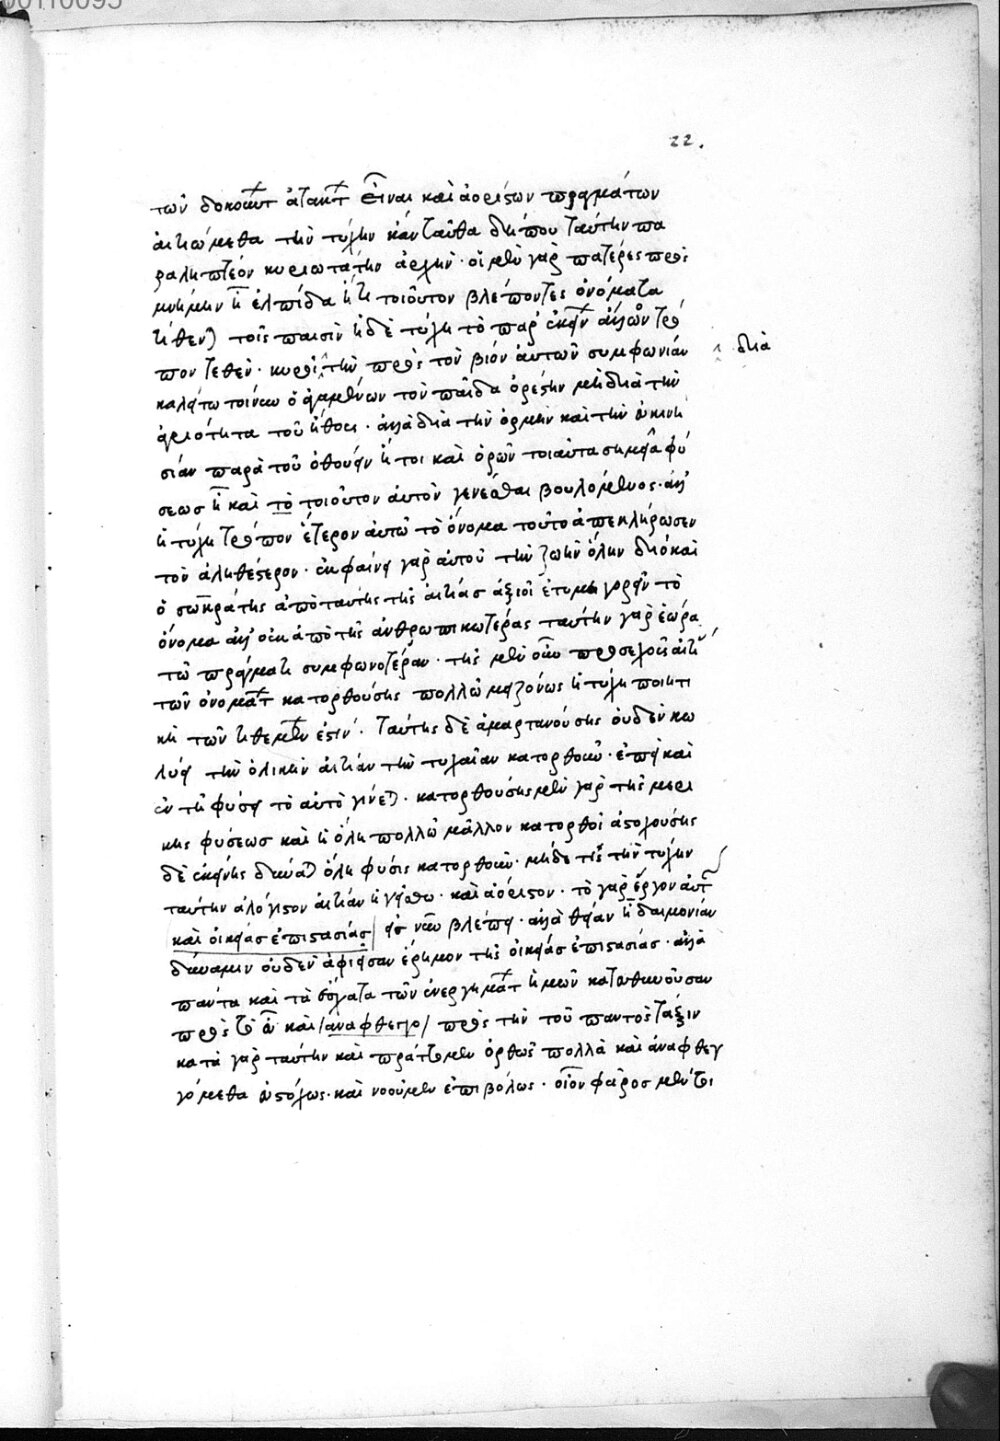 00110095
22.
τῶν δοκούντ ἀτακτ εἶναι καὶ ἀορίστων πραγμάτων
αἰτιώμεθα τὴν τύχην κἀνταῦθα δήπου ταύτην πα
ραληπτέον κυριωτάτην ἀρχήν· οἱ μὲν γὰρ πατέρες πρὸς
μνήμην ἢ ἐλπίδα ἤ τι τοιοῦτον βλέποντες ὀνόματα
τίθεν) τοῖς παισὶν ἡ δὲ τύχη τὸ παρ' ἐκείν ἄλλον τρό
πον τεθέν· κυροῖ τὴν πρὸς τὸν βίον αὐτῶν συμφωνίαν
διὰ
καλείτω τοίνυν ὁ ἀγαμέμνων τὸν παῖδα ὀρέστην μὴ διὰ τὴν
ἀγριότητα τοῦ ἤθους· ἀλλὰ διὰ τὴν ὁρμὴν καὶ τὴν εὐκινη
σίαν παρὰ τοῦ ὀθούειν ἤτοι καὶ ὁρῶν τοιαῦτα σημεῖα φύ
σεως ἢ καὶ τὸ τοιοῦτον αὐτὸν γενέσθαι βουλόμενος· ἀλλ'
ἡ τύχη τρόπον ἕτερον αὐτῷ τὸ ὄνομα τοῦτο ἀπεκλήρωσεν
τὸν ἀληθέστερον· ἐκφαίνει γὰρ αὐτοῦ τὴν ζωὴν ὅλην διὸ καὶ
ὁ σωκράτης ἀπὸ ταύτης τῆς αἰτίας ἀξιοῖ ἐτυμηγορεῖν τὸ
ὄνομα ἀλλ' οὐκ ἀπὸ τῆς ἀνθρωπικωτέρας ταύτην γὰρ ἑώρα
τῷ πράγματι συμφωνοτέραν· τῆς μὲν οὖν προσεχοῦς αἰτί
τῶν ὀνομάτ κατορθούσης πολλῷ μειζόνως ἡ τύχη ποιητι
κὴ τῶν τιθεμέν ἐστίν· ταύτης δὲ ἁμαρτανούσης οὐδὲν κω
λύει τὴν ὁλικὴν αἰτίαν τὴν τυχαίαν κατορθοῦν· ἐπεὶ καὶ
ἐν τῇ φύσει τὸ αὐτὸ γίνε)· κατορθούσης μὲν γὰρ τῆς μερι
κῆς φύσεως καὶ ἡ ὅλη πολλῷ μᾶλλον κατορθοῖ ἀστοχούσης
δὲ ἐκείνης δύνα) ὅλη φύσις κατορθοῦν· μηδέ τις τὴν τύχην
ταύτην ἀλόγιστον αἰτίαν ἡγείσθω· καὶ ἀόριστον· τὸ γὰρ ἔργον αὐτῆς
καὶ οἰκείας ἐπιστασίας εἰς νοῦν βλέπει· ἀλλὰ θείαν ἢ δαιμονίαν
δύναμιν οὐδὲν ἀφιεῖσαν ἔρημον τῆς οἰκείας ἐπιστασίας· ἀλλὰ
πάντα καὶ τὰ ἔσχατα τῶν ἐνεργημάτ ἡμῶν κατευθύνουσαν
πρὸς τὸ εὖ καὶ / ἀναφθεγγο / πρὸς τὴν τοῦ παντὸς τάξιν
κατὰ γὰρ ταύτην καὶ πράττομεν ὀρθῶς πολλὰ καὶ ἀναφθεγ
γόμεθα εὐστόχως· καὶ νοοῦμεν ἐπιβόλως· οἷον φάρος μέν τοι